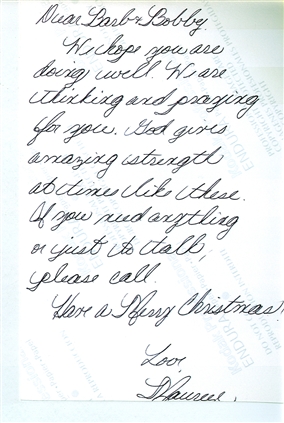 Dear Barb & Bobby,
We hope you are
doing well. We are
thinking and praying
for you. God gives
amazing strength
at times like these.
If you need anything
or just to talk,
please call.
Have a Merry Christmas!
Love,